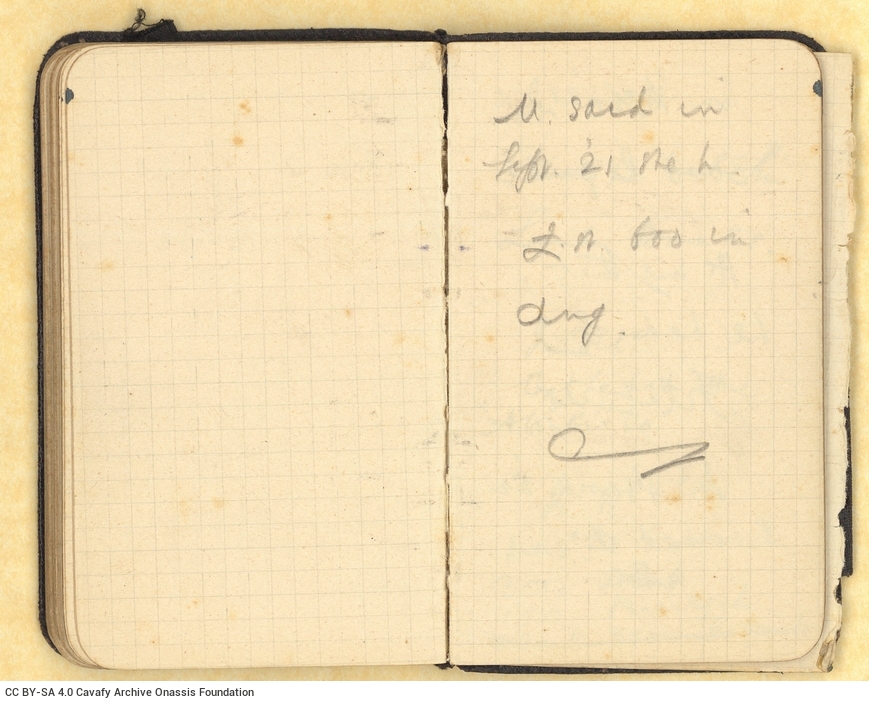 M. said in
Sept. '21 she h.
600 in
Aug.
CC BY-SA 4.0 Cavafy Archive Onassis Foundation